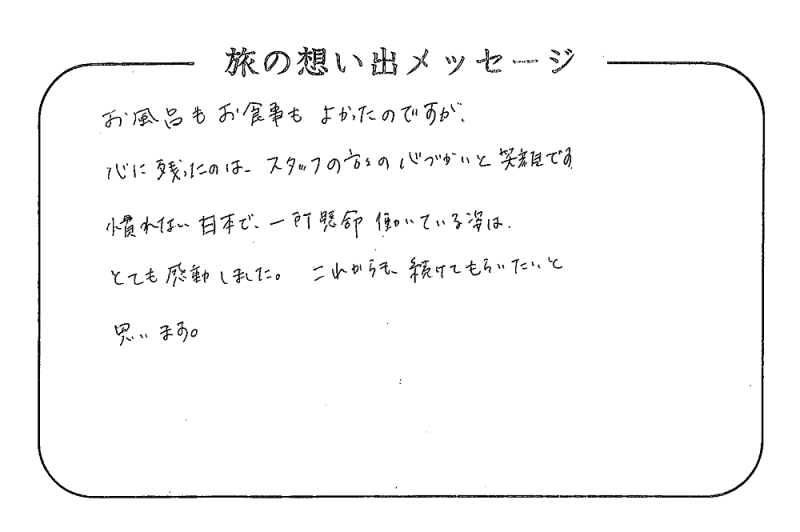 旅の想い出メッセージ
お風呂もお食事もよかったのですが、
心に残ったのは、スタッフの方々の心づかいと笑顔です
慣れない日本で、一所懸命働いている姿は、
とても感動しました。 これからも、続けてもらいたいと
思います。